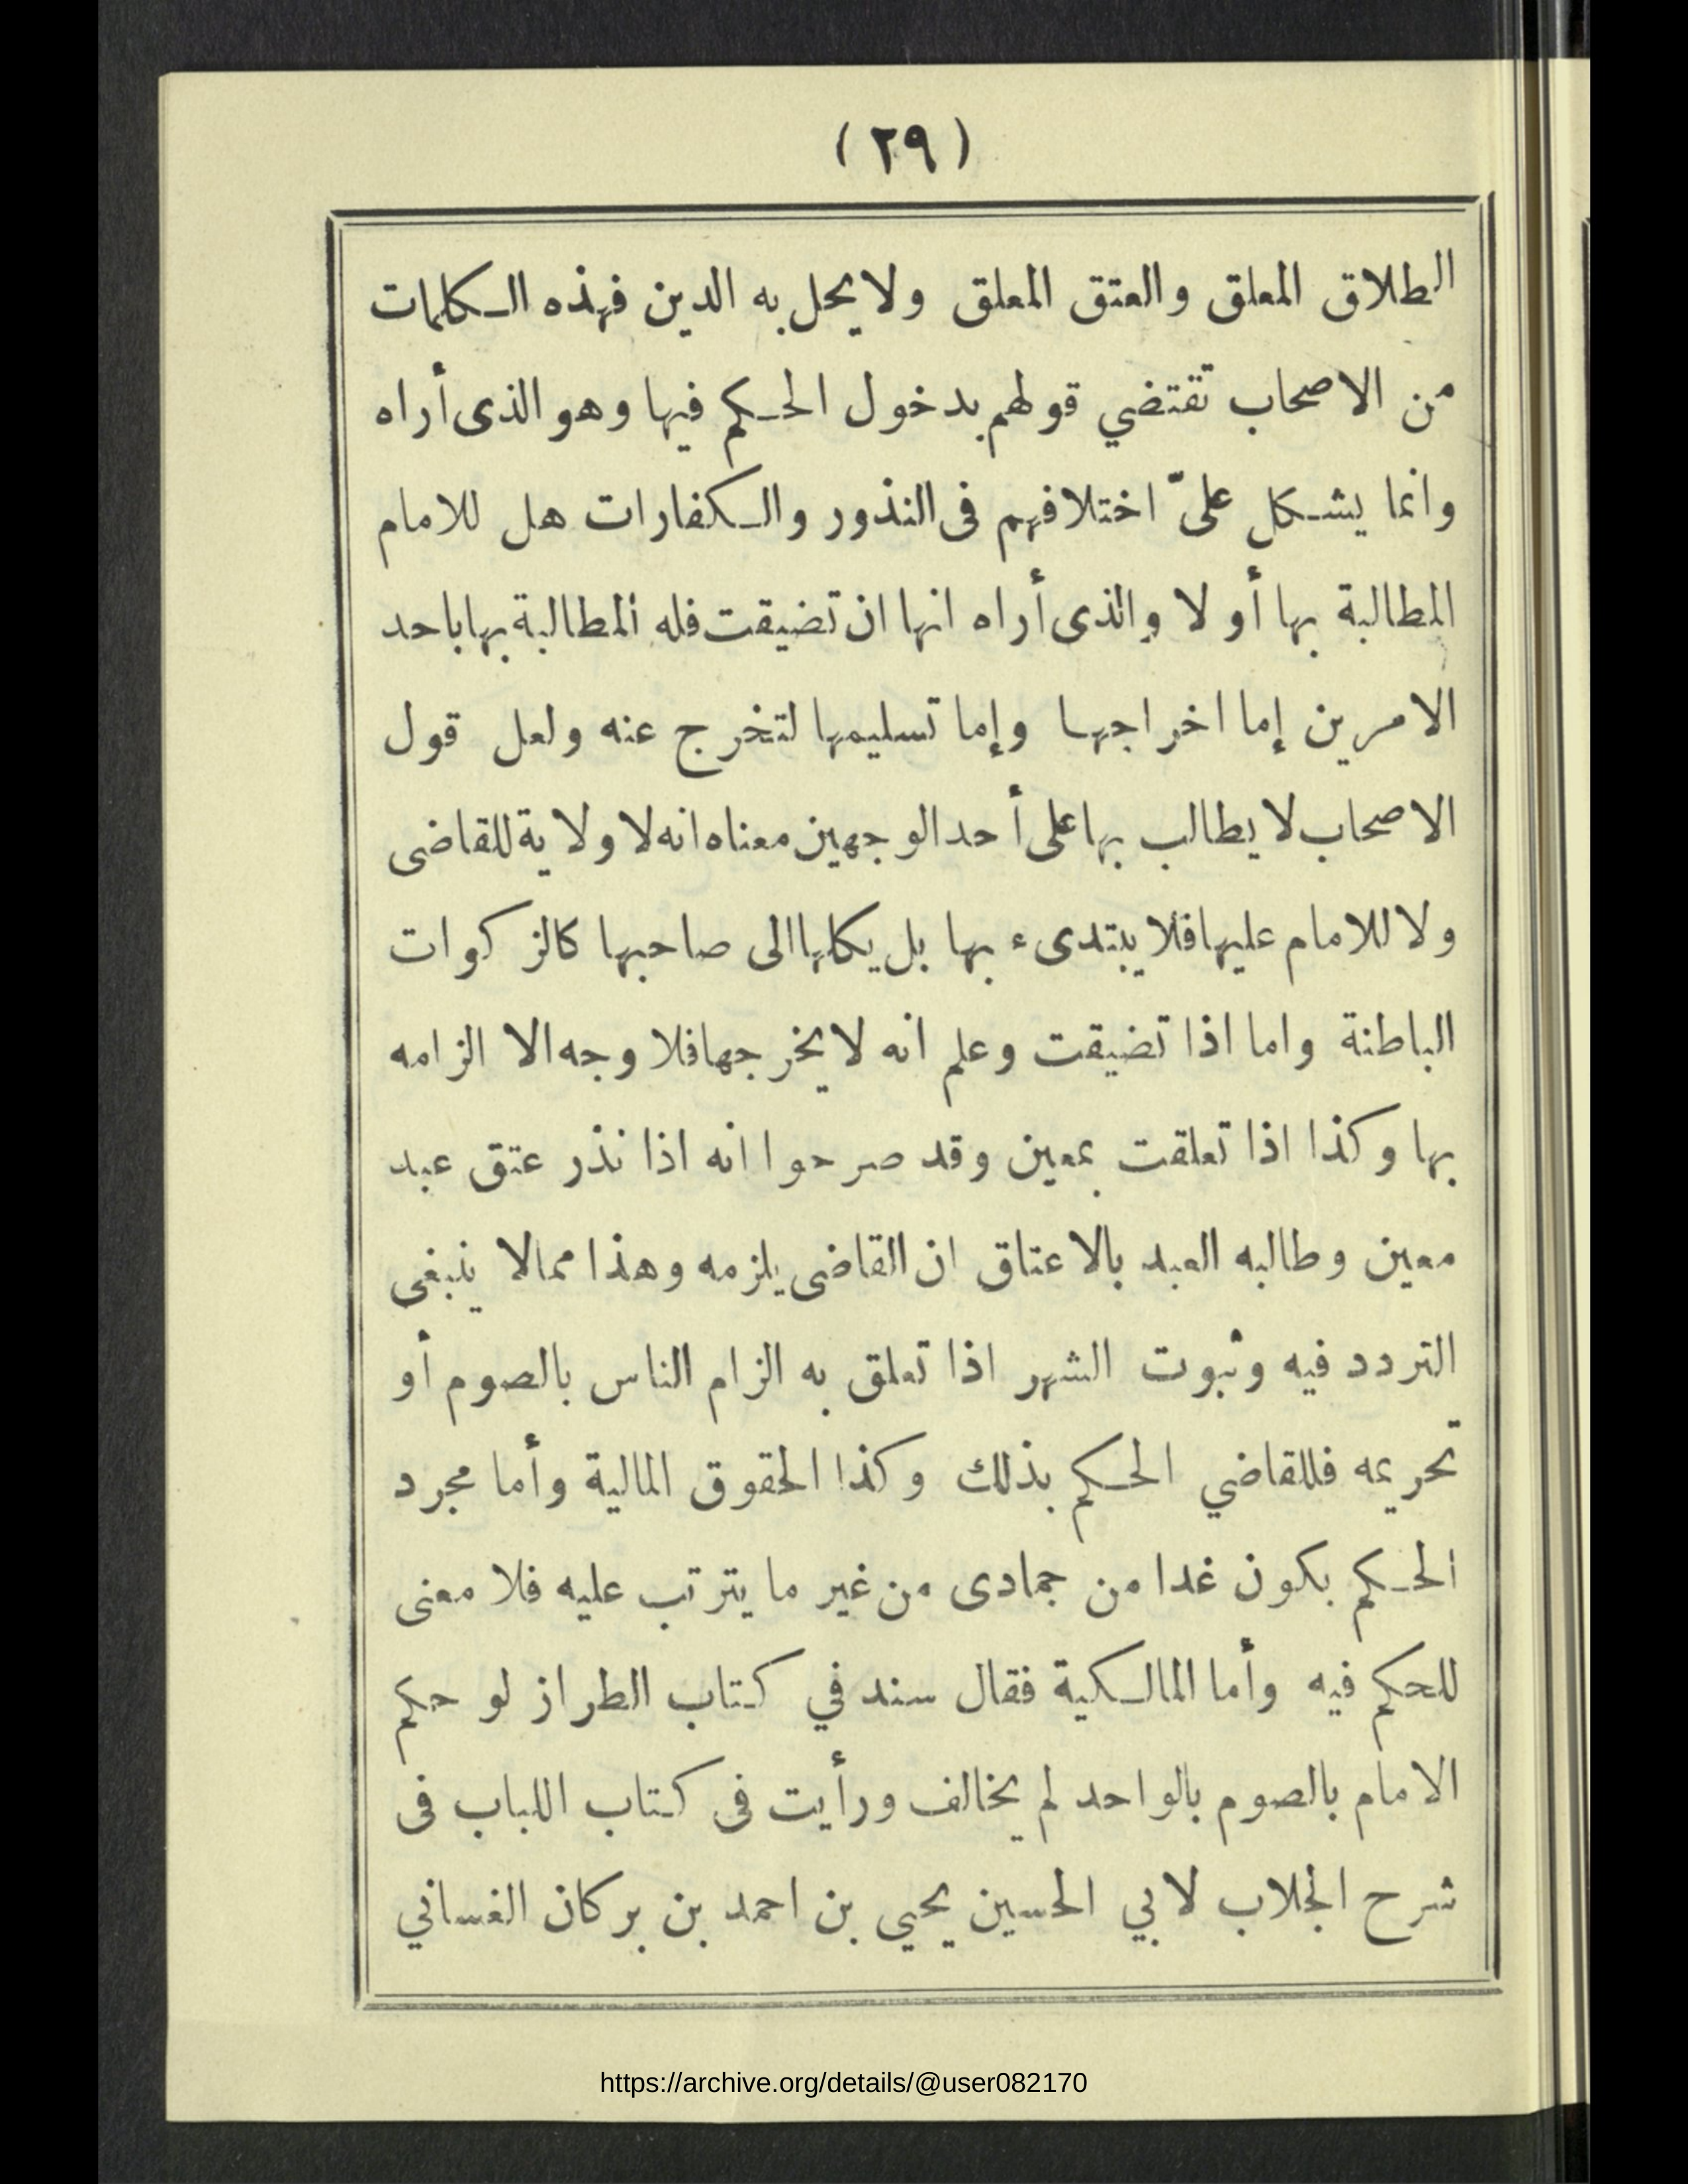 (٢٩)
الطلاق المعلق والعتق المعلق ولا يحل به الدين فهذه الكلمات
من الاصحاب تقتضي قولهم بدخول الحكم فيها وهو الذى أراه
وانما يشكل علىّ اختلافهم فى النذور والكفارات هل للامام
المطالبة بها أو لا والذى أراه انها ان تضيقت فله المطالبة بها باحد
الامرين إما اخراجها وإما تسليمها لتخرج عنه ولعل قول
الاصحاب لا يطالب بها على أحد الوجهين معناه انه لا ولاية للقاضى
ولا للامام عليها فلا يبتدىء بها بل يكلها الى صاحبها كالزكوات
الباطنة واما اذا تضيقت وعلم انه لا يخرجها فلا وجه الا الزامه
بها وكذا اذا تعلقت بمعين وقد صرحوا انه اذا نذر عتق عبد
معين وطالبه العبد بالاعتاق ان القاضى يلزمه وهذا ممالا ينبغى
التردد فيه وثبوت الشهر اذا تعلق به الزام الناس بالصوم أو
تحريمه فللقاضي الحكم بذلك وكذا الحقوق المالية وأما مجرد
الحكم بكون غدا من جمادى من غير ما يترتب عليه فلا معنى
للحكم فيه وأما المالكية فقال سند في كتاب الطراز لو حكم
الامام بالصوم بالواحد لم يخالف ورأيت فى كتاب اللباب فى
شرح الجلاب لابي الحسين يحيي بن احمد بن بركان الغساني
https://archive.org/details/@user082170